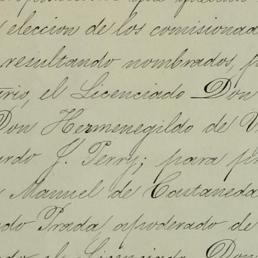 y eleccion de los comisionad
resultando nombrados, p
el Licenciado Don
Don Hermenegildo de V
ardo J. Perry; para pr
Manuel de Castaneda
do Prada, apoderado de
el Licenciado Don